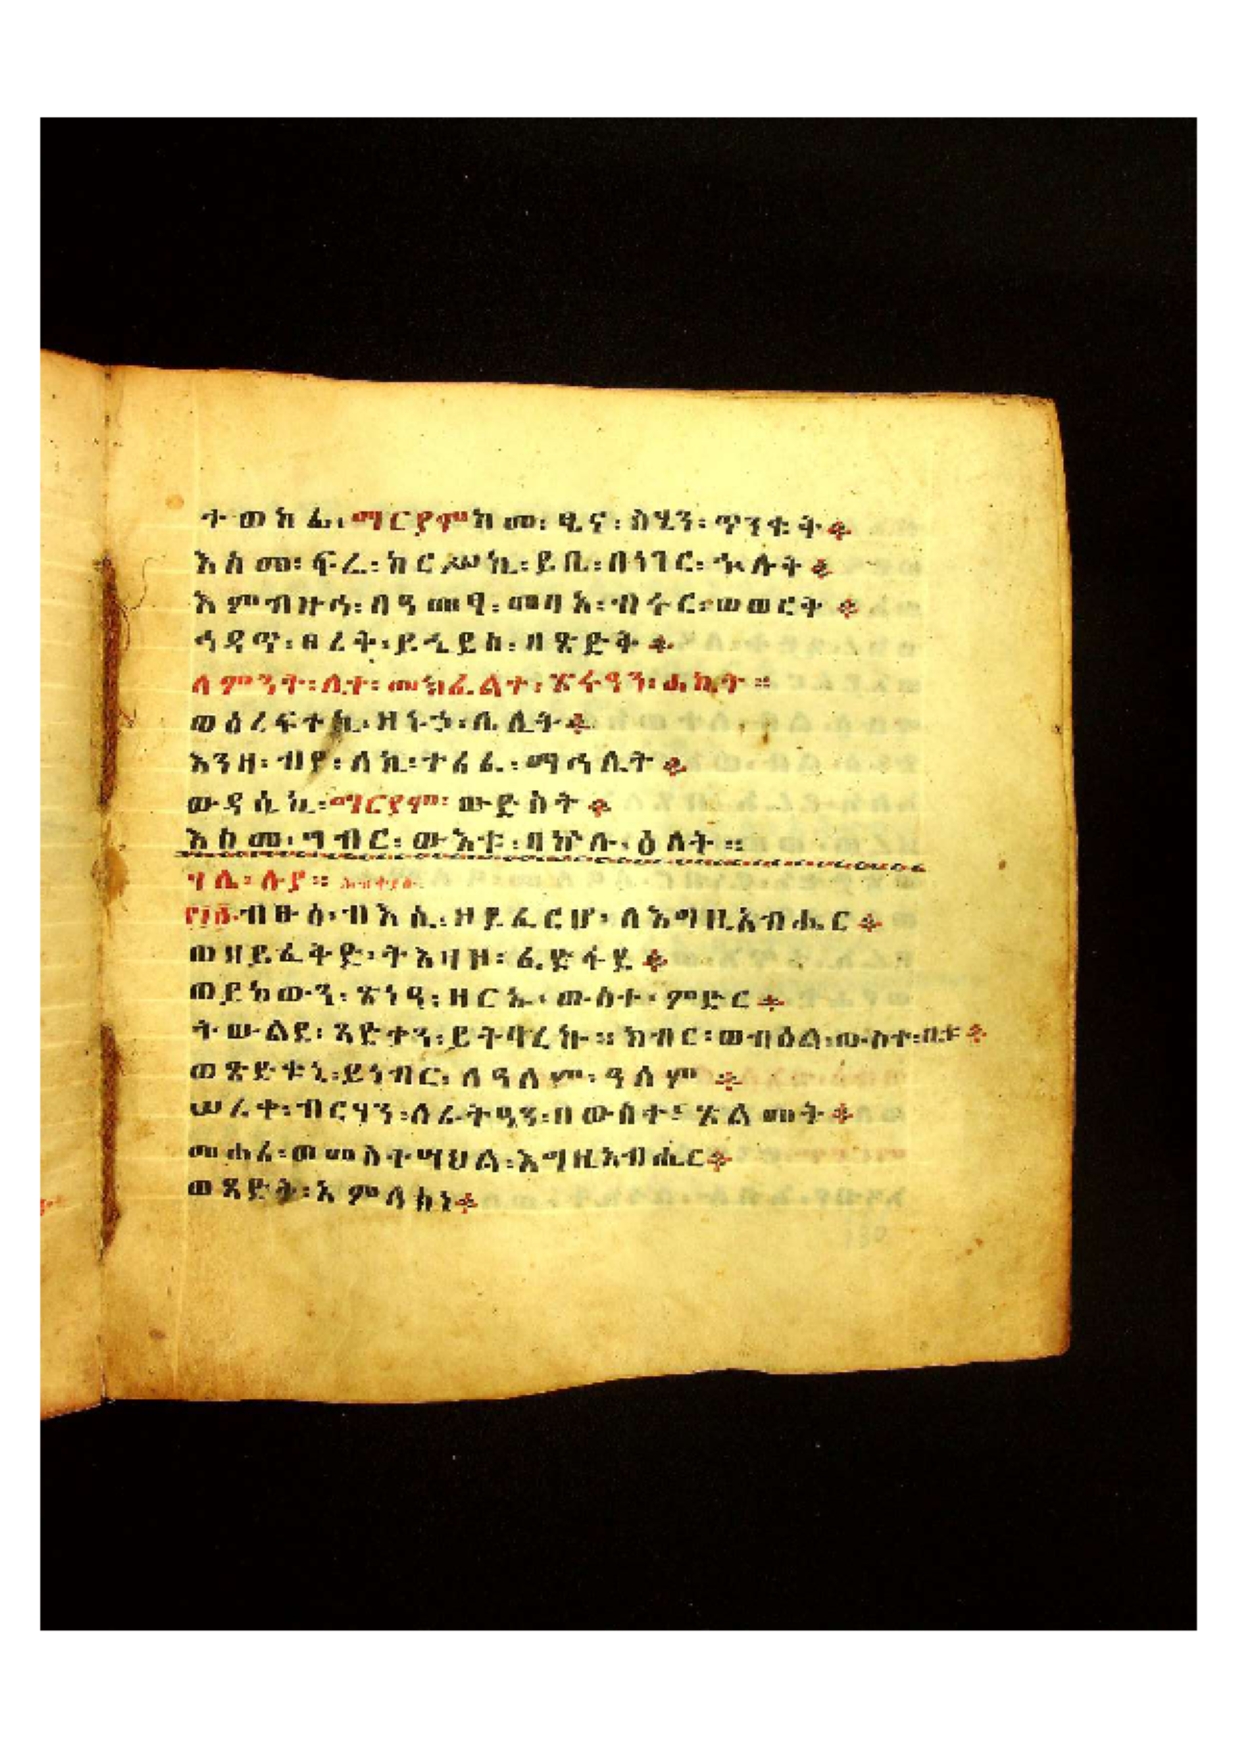 ተወክፊ፡ማርያምከመ፡ ዲና፡ ስሂን፡ ጥንቁት
እስመ፡ ፍሬ፡ ከርሥኪ፡ ይቤ፡ በነገር፡ ኍሉት
እምብዙኅ፡ በዓመፃ፡ መባአ፡ ብሩር፡ ወወርቅ
ኅዳጥ፡ ፀሪት፡ ይኄይስ፡ በጽድቅ
ለምንት፡ ሊተ፡ መክፈልተ፡ ኃሩዓን፡ ሐኪት ።
ወዕረፍተኪ፡ ዘነግሀ፡ ሌሊት
እንዘ፡ ብየ፡ ለኪ፡ ተሪፈ፡ ማኅሌት
ውዳሴኪ፡ ማርያም፡ ውድስት
እስመ፡ ግብር፡ ውእቱ፡ በኵሉ፡ ዕለት ።
ሃሌ፡ ሉያ ።
ብፁዕ፡ ብእሲ፡ ዘይፈርሆ፡ ለእግዚአብሔር
ወዘይፈትድ፡ ትእዛዞ፡ ፈድፋደ
ወይከውን፡ ኃነዓ፡ ዘርኡ፡ ውስተ፡ ምድር
ትውልደ፡ ጻድቃን፡ ይትባረኩ ። ክብር፡ ወብዕል፡ ውስተ፡ ቤቱ
ወጽድቁኒ፡ ይነብር፡ ለዓለም፡ ዓለም
ሠረቀ፡ ብርሃን፡ ለራትዓን፡ በውስተ፡ ጽልመት
መሐሪ፡ ወመስተሣህል፡ እግዚአብሔር
ወጻድቅ፡ አምላክነ